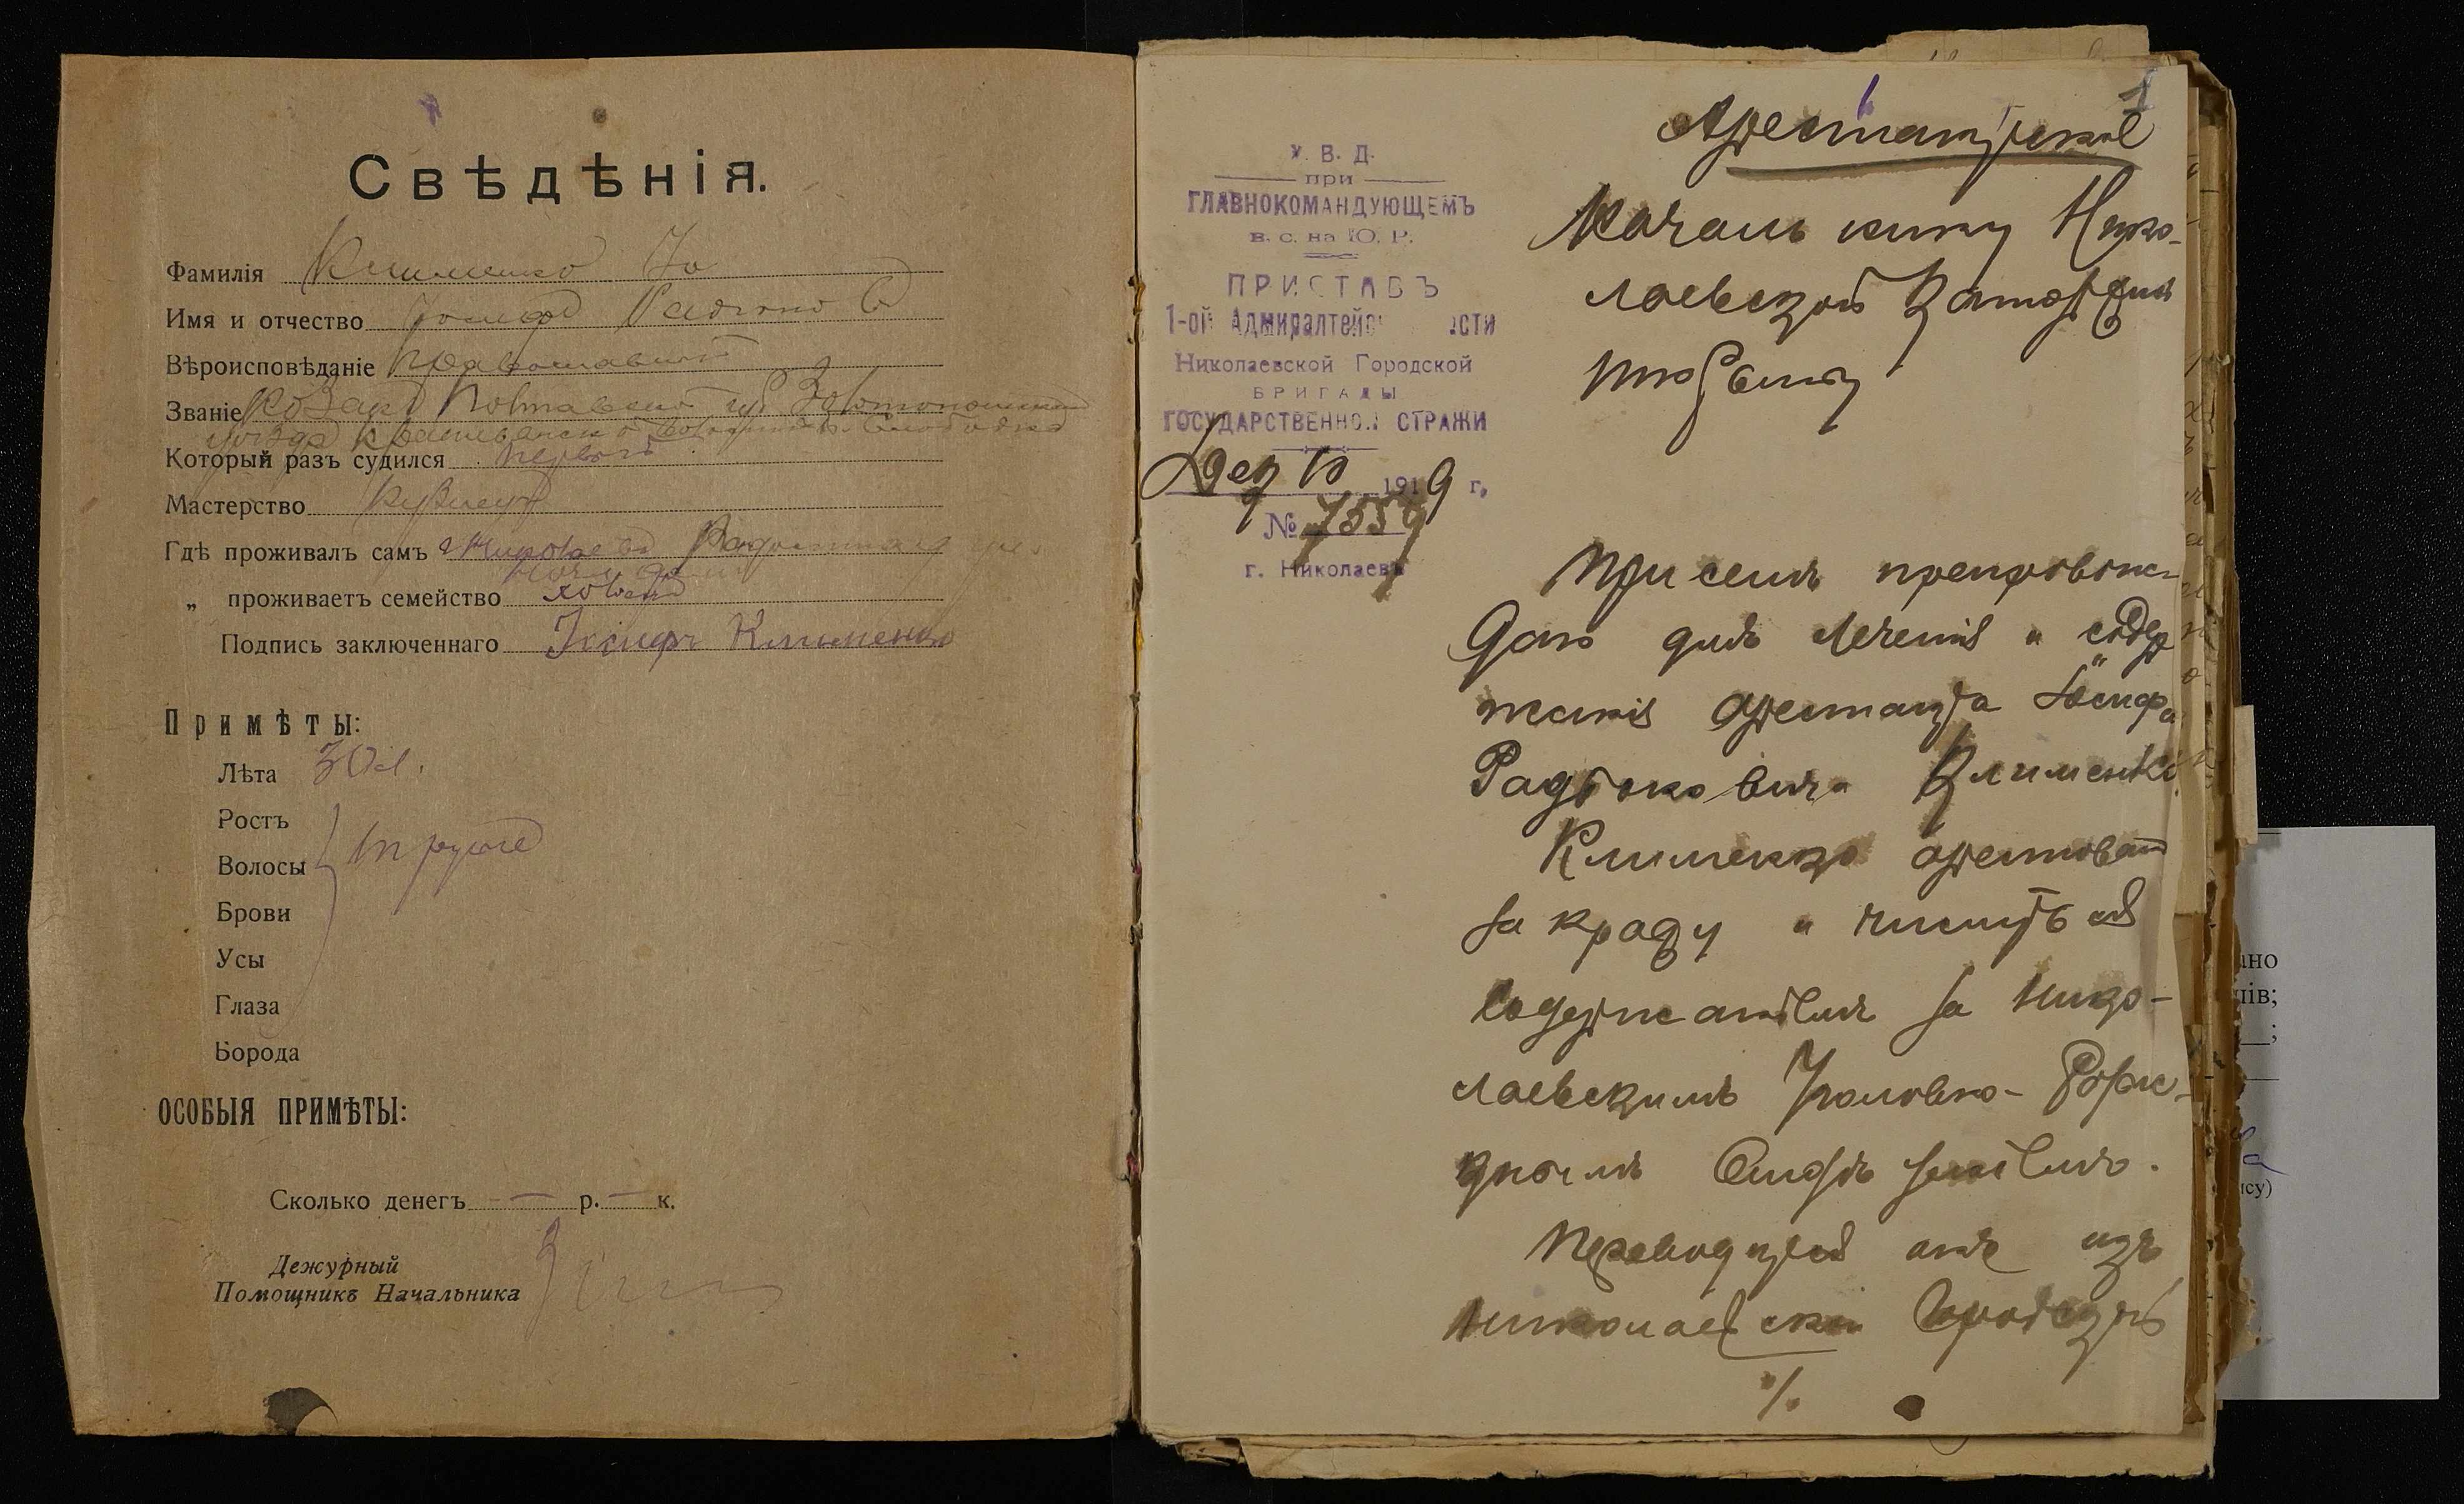 Свѣдѣнія.
Фамилія Клименко
Имя и отчество Іосифъ
Вѣроисповѣданіе Православный
Званіе Козакъ Полтавской губ Золотоношскаго
уѣзда
Который разъ судился первый
Мастерство Кузнецъ
Гдѣ проживалъ самъ
„ проживаетъ семейство холостъ
Подпись заключеннаго Іосифъ Клименко
Примѣты:
Лѣта 30 л.
Ростъ
Волосы
Брови
Усы
Глаза
Борода
ОСОБЫЯ ПРИМѢТЫ:
Сколько денегъ — р. — к.
Дежурный
Помощникъ Начальника
1
Арестантское
У. В. Д.
при
ГЛАВНОКОМАНДУЮЩЕМЪ
в. с. на Ю. Р.
ПРИСТАВЪ
1-ой Адмиралтейс сти
Николаевской Городской
БРИГАДЫ
ГОСУДАРСТВЕННОЙ СТРАЖИ
Дек 10 1919 г.
№ 7559
г. Николаевъ
Начальнику Нико-
лаевской Каторжной
тюрьмы
При семъ препровож-
даю для леченія и содер
жанія арестанта Іосифа
Клименко
Клименко арестованъ
за кражу и числится
содержаніемъ за Нико-
лаевскимъ Уголовно-Розыс-
кнымъ Отдѣленіемъ.
Переводится онъ изъ
Николаевской Городской
%
но
ів;
;
ису)